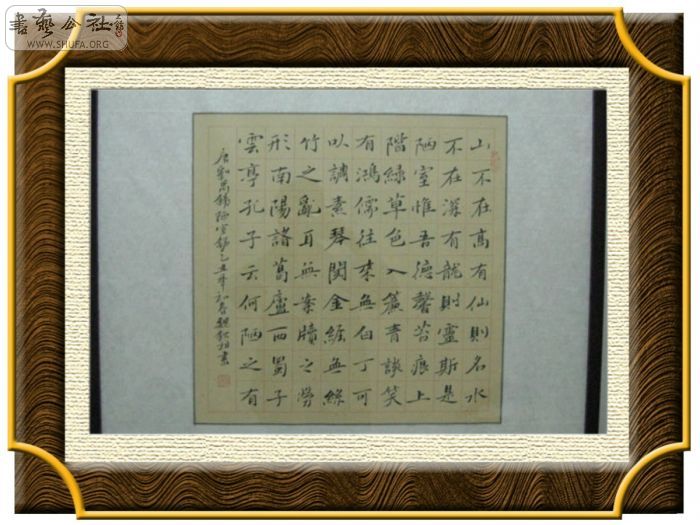 書藝公社
WWW.SHUFA.ORG
山不在高有仙則名水
不在深有龍則靈斯是
陋室惟吾德馨苔痕上
階綠草色入簾青談笑
有鴻儒往來無白丁可
以調素琴閱金經無絲
竹之亂耳無案牘之勞
形南陽諸葛廬西蜀子
雲亭孔子云何陋之有
唐劉禹錫陋室銘己丑年初春魏相書